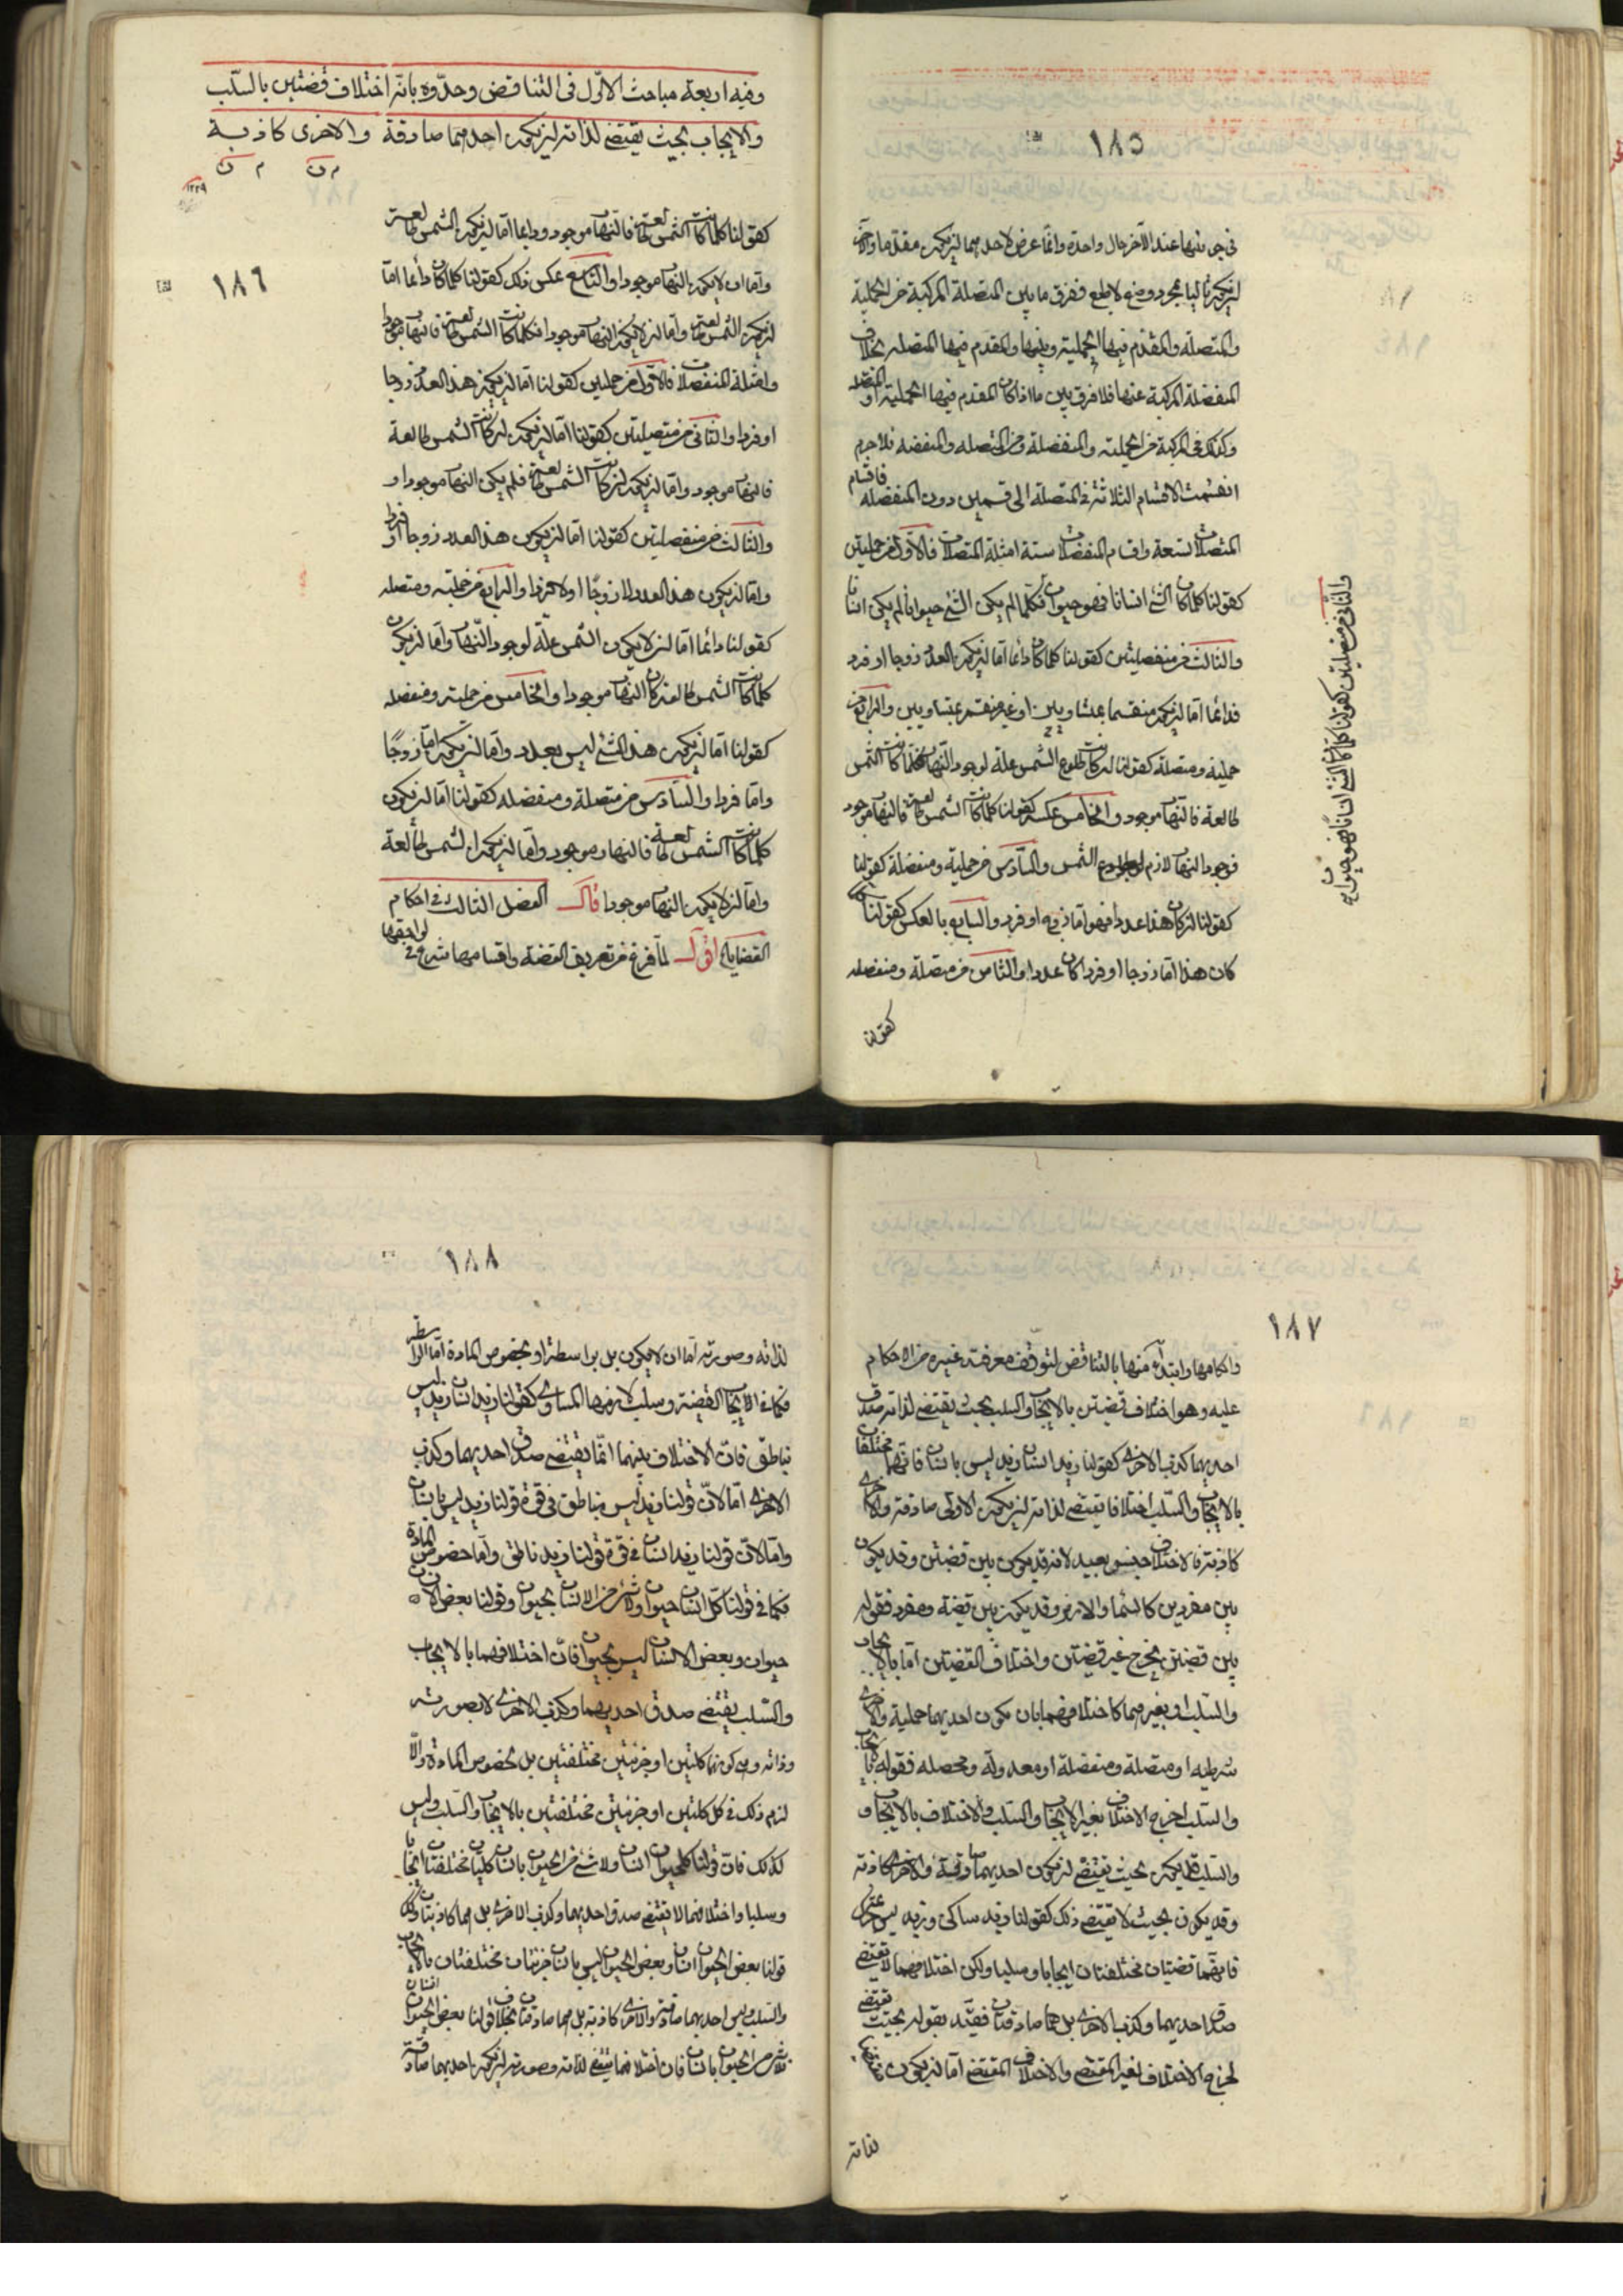 ١٨٥
في جزئيها عند الآخر حال واحدة وانما عرض لاحدهما ان يكون مقدما والآخر
ان يكون تاليا بمجرد وضع لا بطبع ففرق ما بين المتصلة المركبة من الحملية
والمتصلة والمقدم فيها الحملية وبينها والمقدم فيها المتصلة بخلاف
المنفصلة المركبة عنها فلا فرق بين ما اذا كان المقدم فيها الحملية او المتصلة
وكذلك في المركبة من الحملية والمنفصلة ومن المتصلة والمنفصلة فلا جرم
انقسمت الاقسام الثلاثة في المتصلة الى قسمين دون المنفصلة فاقسام
المتصلات تسعة واقسام المنفصلات ستة امثلة المتصلات فالاول من حمليتين
كقولنا كلما كان الشئ انسانا فهو حيوان فكلما لم يكن الشئ حيوانا لم يكن انسانا
والثالث من منفصلتين كقولنا كلما كان دائما اما ان يكون العدد زوجا او فردا
فدائما اما ان يكون منقسما بمتساويين او غير منقسم بمتساويين والرابع من
حملية ومتصلة كقولنا ان كان طلوع الشمس علة لوجود النهار فكلما كانت الشمس
طالعة فالنهار موجود والخامس عكسه كقولنا كلما كانت الشمس طالعة فالنهار موجود
فوجود النهار لازم لطلوع الشمس والسادس من حملية ومنفصلة كقولنا
كقولنا ان كان هذا عددا فهو اما زوج او فرد والسابع بالعكس كقولنا كلما
كان هذا اما زوجا او فردا كان عددا والثامن من متصلة ومنفصلة
كقولنا
والثاني من متصلتين كقولنا كلما كان الشئ انسانا فهو حيوان
وفيه اربعة مباحث الاول في التناقض وحدّوه بانه اختلاف قضيتين بالسلب
والايجاب بحيث يقتضي لذاته ان يكون احديهما صادقة والاخرى كاذبة
١٢٢٩
١٨٦
كقولنا كلما كانت الشمس طالعة فالنهار موجود ودائما اما ان يكون الشمس طالعة
واما ان لا يكون النهار موجودا والتاسع عكس ذلك كقولنا كلما كان دائما اما
ان يكون الشمس طالعة واما ان لا يكون النهار موجودا فكلما كانت الشمس طالعة فالنهار موجود
وامثلة المنفصلات فالاول من حمليتين كقولنا اما ان يكون هذا العدد زوجا
او فردا والثاني من متصلتين كقولنا اما ان يكون ان كانت الشمس طالعة
فالنهار موجود واما ان يكون ان كانت الشمس طالعة فلم يكن النهار موجودا و
والثالث من منفصلتين كقولنا اما ان يكون هذا العدد زوجا او فردا
واما ان يكون هذا العدد لا زوجا او لا فردا والرابع من حملية ومتصلة
كقولنا دائما اما ان لا يكون الشمس علة لوجود النهار واما ان يكون
كلما كانت الشمس طالعة كان النهار موجودا والخامس من حملية ومنفصلة
كقولنا اما ان يكون هذا الشئ ليس بعدد واما ان يكون اما زوجا
واما فردا والسادس من متصلة ومنفصلة كقولنا اما ان يكون
كلما كانت الشمس طالعة فالنهار موجود واما ان يكون الشمس طالعة
واما ان لا يكون النهار موجودا قال الفصل الثالث في احكام
القضايا اقول لما فرغ من تعريف القضية واقسامها شرع في لواحقها
١٨٧
واحكامها وابتدأ منها بالتناقض لتوقف معرفة غيره من الاحكام
عليه وهو اختلاف قضيتين بالايجاب والسلب بحيث يقتضي لذاته صدق
احديهما كذب الاخرى كقولنا زيد انسان زيد ليس بانسان فانهما مختلفان
بالايجاب والسلب اختلافا يقتضي لذاته ان يكون الاولى صادقة والاخرى
كاذبة فالاختلاف جنس بعيد لانه قد يكون بين قضيتين وقد يكون
بين مفردين كالسماء والارض وقد يكون بين قضية ومفرد فقوله
بين قضيتين يخرج غير قضيتين واختلاف القضيتين اما بالايجاب
والسلب او بغيرهما كاختلافهما بان يكون احديهما حملية والاخرى
شرطية او متصلة ومنفصلة او معدولة ومحصلة فقوله بالايجاب
والسلب اخرج الاختلاف بغير الايجاب والسلب والاختلاف بالايجاب و
والسلب قد يكون بحيث يقتضي ان يكون احديهما صادقة والاخرى كاذبة
وقد يكون بحيث لا يقتضي ذلك كقولنا زيد ساكن وزيد ليس بمتحرك
فانهما قضيتان مختلفتان ايجابا وسلبا ولكن اختلافهما لا يقتضي
صدق احديهما وكذب الاخرى بل هما صادقتان فقيّد بقوله بحيث يقتضي
لخرج الاختلاف لغير المقتضي والاختلاف المقتضي اما ان يكون
لذاته
١٨٨
لذاته وصورته اما ان لا يكون بل بواسطة او بخصوص المادة اما الواسطة
فكما في الايجاب القضية وسلب لازمها المساوي كقولنا زيد انسان زيد ليس
بناطق فان الاختلاف بينهما انما يقتضي صدق احديهما وكذب
الاخرى اما لان قولنا زيد ليس بناطق في قوة قولنا زيد ليس بانسان
واما لان قولنا زيد انسان في قوة قولنا زيد ناطق واما خصوص المادة
فكما في قولنا كل انسان حيوان ولا شئ من الانسان بحيوان وقولنا بعض الانسان
حيوان وبعض الانسان ليس بحيوان فان اختلافهما بالايجاب
والسلب يقتضي صدق احديهما وكذب الاخرى لا بصورته
وذاته وهي كونهما كليتين او جزئيتين مختلفتين بل بخصوص المادة والا
لزم ذلك في كل كليتين او جزئيتين مختلفتين بالايجاب والسلب وليس
كذلك فان قولنا كل حيوان انسان ولا شئ من الحيوان بانسان كليتان مختلفتان ايجابا
وسلبا واختلافهما لا يقتضي صدق احديهما وكذب الاخرى بل هما كاذبتان وكذلك
قولنا بعض الحيوان انسان وبعض الحيوان ليس بانسان جزئيتان مختلفتان بالايجاب
والسلب وليس احديهما صادقة والاخرى كاذبة بل هما صادقتان بخلاف قولنا بعض الحيوان انسان
لا شئ من الحيوان بانسان فان اختلافهما يقتضي لذاته وصورته ان يكون احديهما صادقة